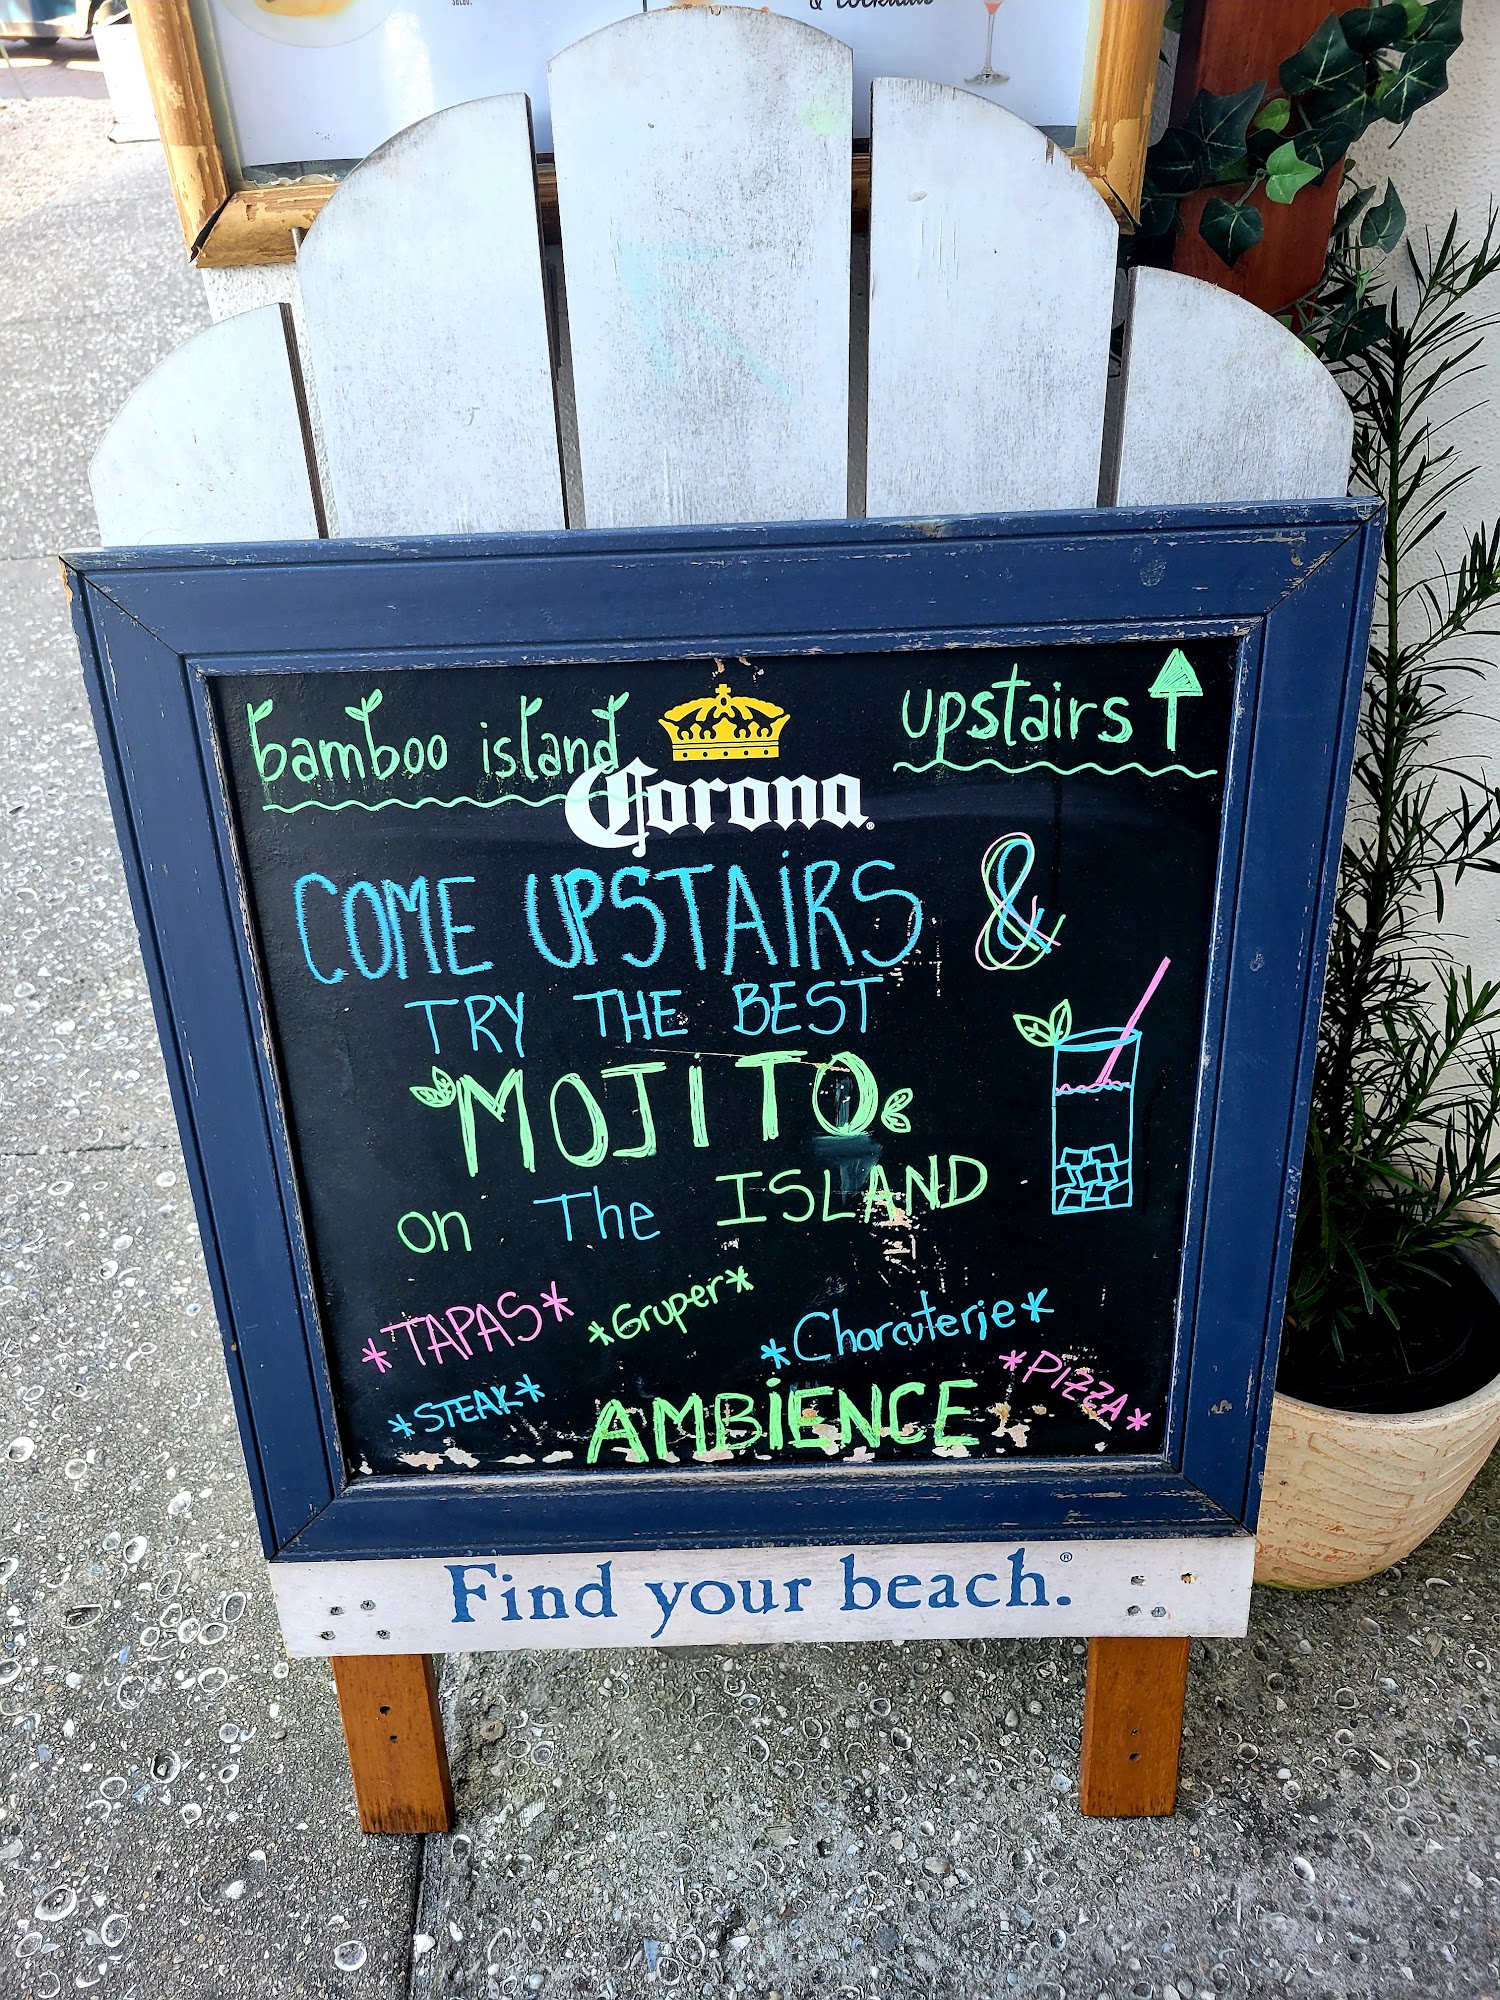 & cocktails
bamboo island
upstairs
Corona®
COME UPSTAIRS &
TRY THE BEST
MOJITO
on The ISLAND
*TAPAS* *Gruper* *Charcuterie*
*STEAK* AMBIENCE *PIZZA*
Find your beach.®